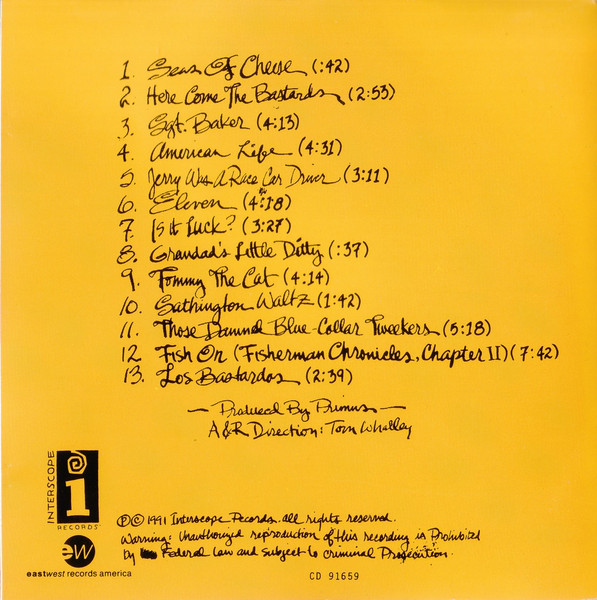 1. Seas Of Cheese (:42)
2. Here Come The Bastards (2:53)
3. Sgt. Baker (4:13)
4. American Life (4:31)
5. Jerry Was A Race Car Driver (3:11)
6. Eleven (4:18)
7. Is it Luck? (3:27)
8. Grandad's Little Ditty (:37)
9. Tommy The Cat (4:14)
10. Sathington Waltz (1:42)
11. Those Damned Blue-Collar Tweekers (5:18)
12 Fish On (Fisherman Chronicles, Chapter II) (7:42)
13. Los Bastardos (2:39)
— Produced By Primus —
A&R Direction: Tom Whalley
INTERSCOPE
i
RECORDS
ew
eastwest records america
℗©1991 Interscope Records. all rights reserved.
Warning: Unauthorized reproduction of this recording is Prohibited
by Federal Law and Subject to criminal Prosecution.
CD 91659